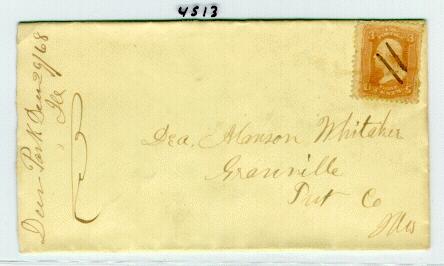 4513
Deer Park Ill
Dea. Alanson Whitaker
Granville
Put Co
Ills
3 3